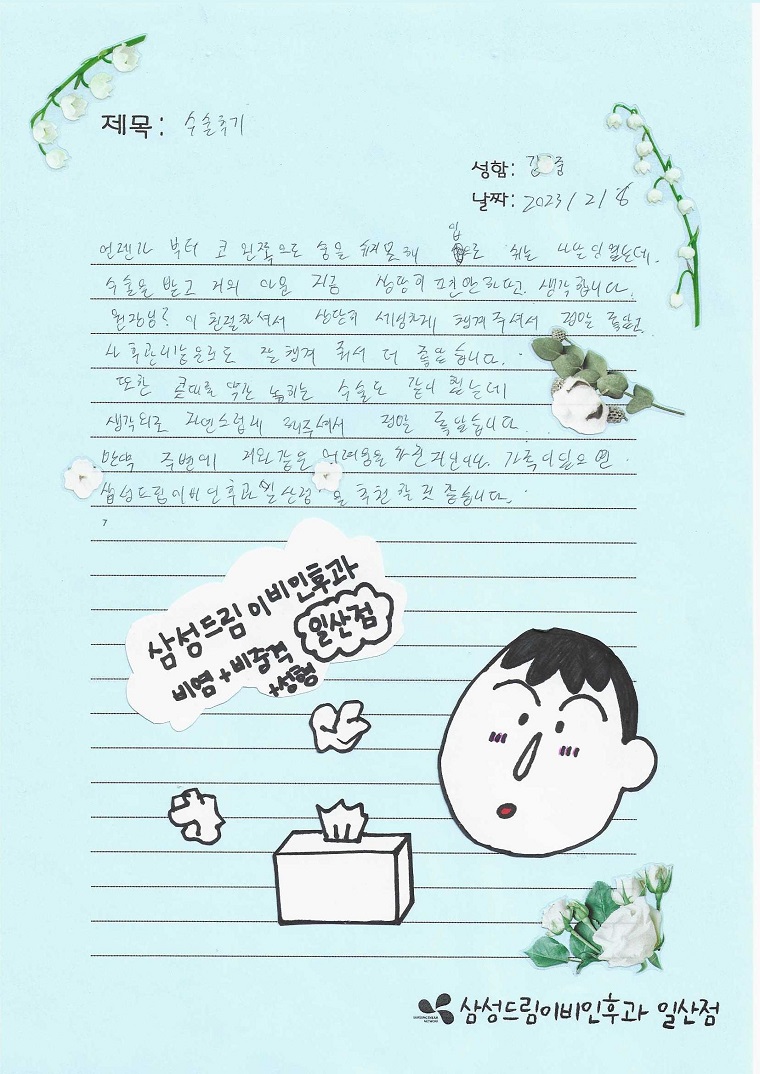 제목: 수술후기
성함: 김 중
날짜: 2023/2/8
언젠가 부터 코 왼쪽으로 숨을 쉬지못해 입으로 쉬는 나날이였는데.
수술을 받고 거의 아문 지금 상당히 편안하다고 생각합니다.
원장님? 이 친절하셔서 상당히 세심하게 챙겨주셔서 정말 좋았고
사후관리방문으로도 잘 챙겨 줘서 더 좋았습니다.
또한 콧대를 약간 높히는 수술도 같이 했는데
생각외로 자연스럽게 해주셔서 정말 좋았습니다.
만약 주변에 저와 같은 어려움을 가진 지인이나 가족이있으면
삼성드림이비인후과 일산점 을 추천 할 것 같습니다.
삼성드림 이비인후과
일산점
비염+비중격
+성형
삼성드림이비인후과 일산점